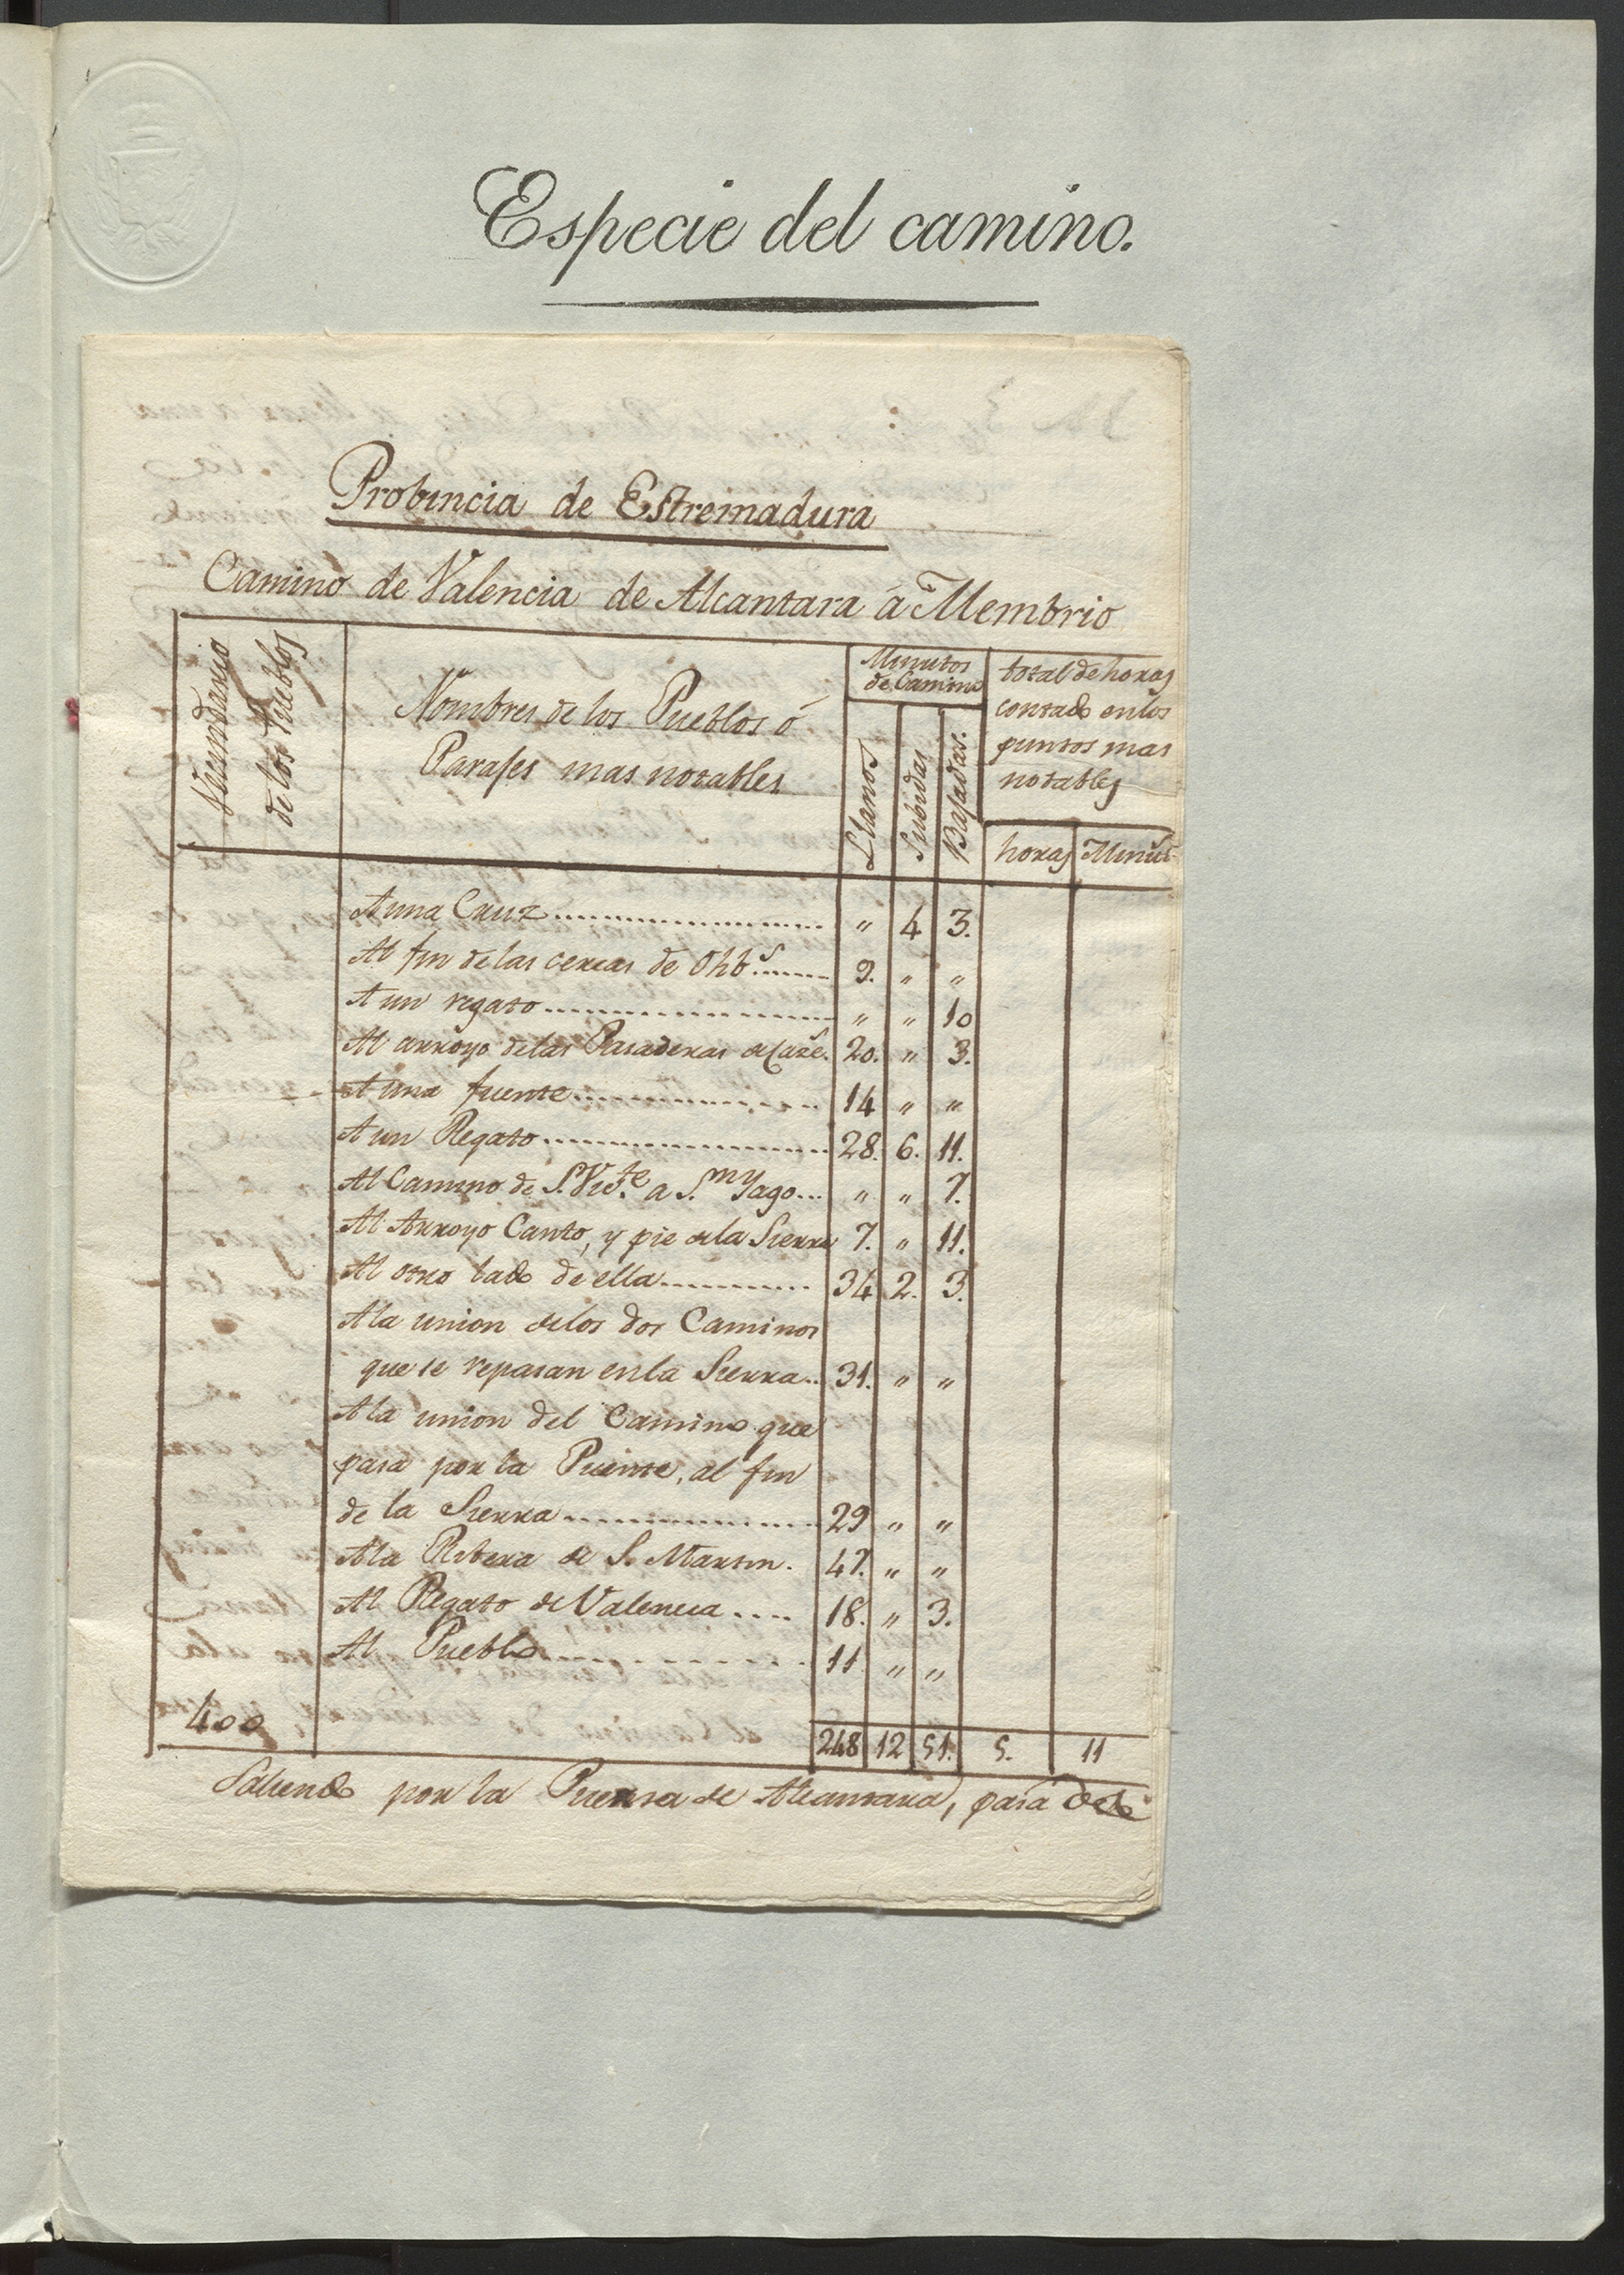 Especie del camino.
Probincia de Estremadura
Camino de Valencia de Alcantara á Membrio
Vecindario
de los Pueblos
Nombres de los Pueblos ó
Parajes mas notables
Minutos
de Camino
Llanos
Subidas
Bajadas.
total de horas
contado en los
puntos mas
notables
horas Minut.
A una Cruz " 4 3.
Al fin de las cercas de Olib.s 9. " "
A un regato " " 10
Al arroyo de las Pasaderas 20. " 3.
A una fuente 14 " "
A un Regato 28. 6. 11.
Al Camino de S. Vic.te a S.n Yago " " 7.
Al Arroyo Canto, y pie de la Sierra 7. " 11.
Al otro lado de ella 34 2. 3.
A la union de los dos Caminos
que se reparan en la Sierra 31. " "
A la union del Camino que
pasa por la Puente, al fin
de la Sierra 29 " "
A la Ribera de S. Martin. 47. " "
Al Regato de Valencia 18. " 3.
Al Pueblo 11 " "
400 248 12 51. 5. 11
Saliendo por la Puerta de Alcantara, pasa